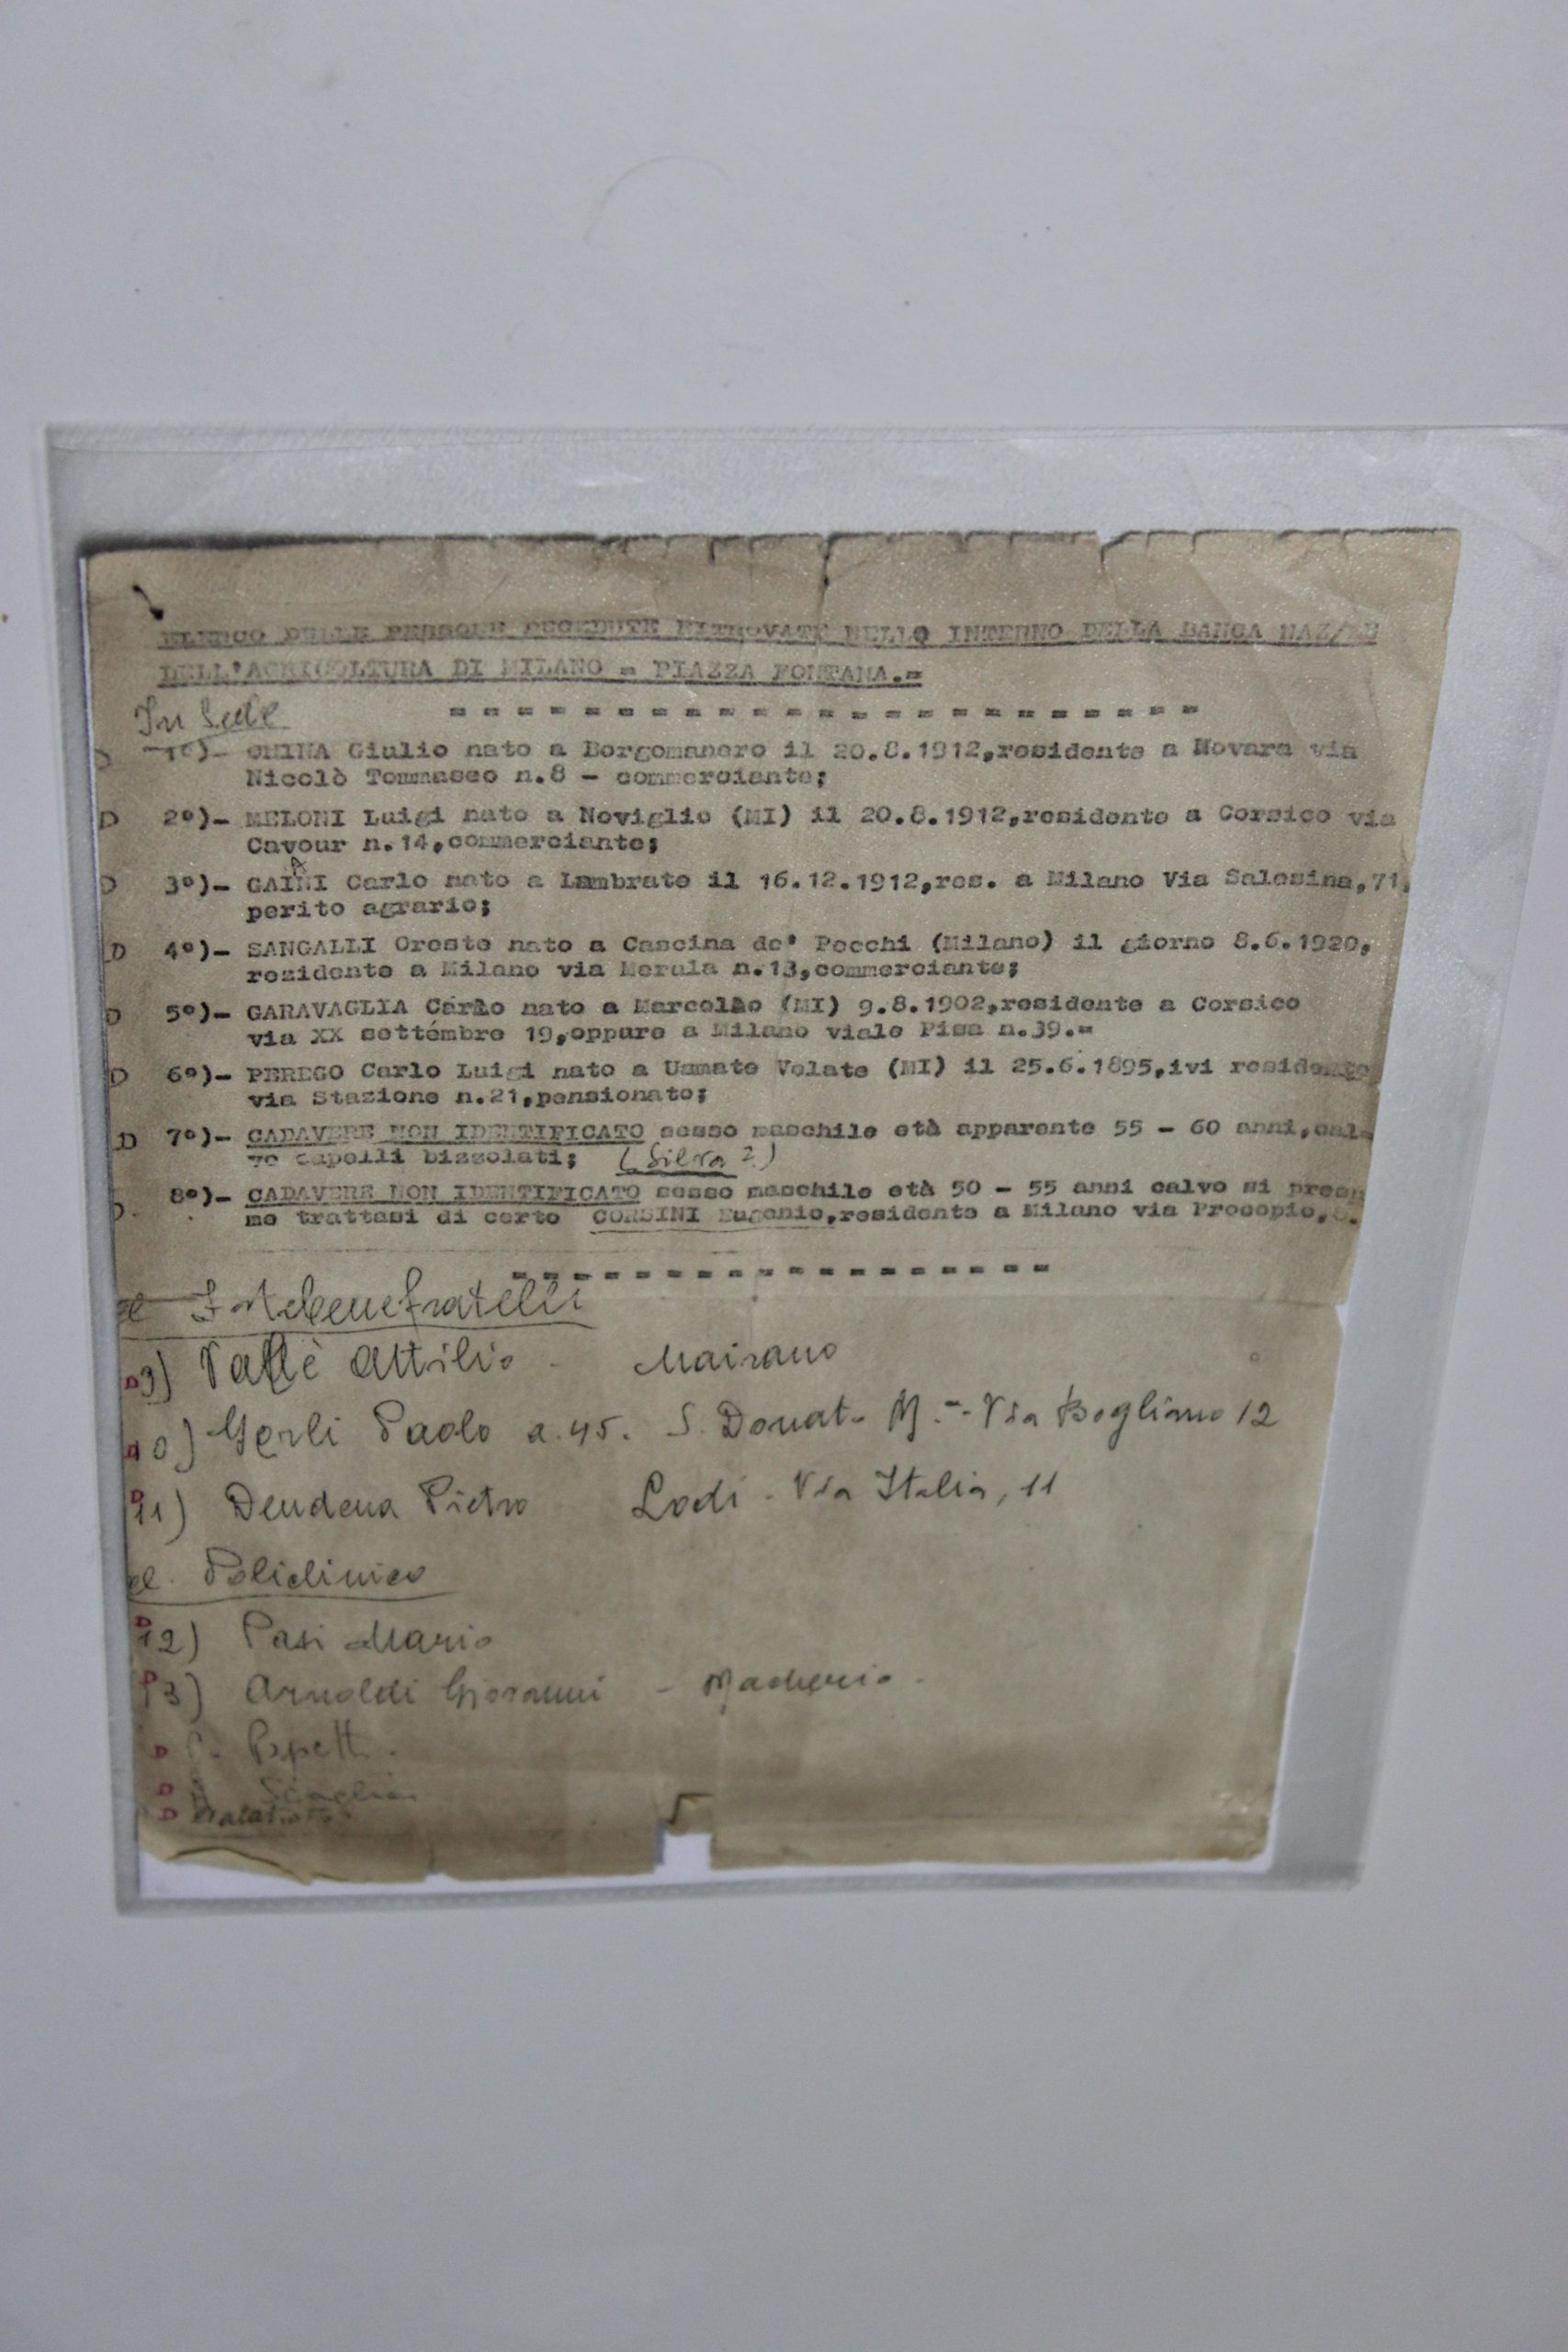 ELENCO DELLE PERSONE DECEDUTE RITROVATE NELLO INTERNO DELLA BANCA NAZ/LE
DELL'AGRICOLTURA DI MILANO = PIAZZA FONTANA.=
In Sede
D 1°)- CHINA Giulio nato a Borgomanero il 20.8.1912,residente a Novara via
Nicolò Tommaseo n.8 - commerciante;
D 2°)- MELONI Luigi nato a Noviglio (MI) il 20.8.1912,residente a Corsico via
Cavour n.14,commerciante;
D 3°)- GAINI Carlo nato a Lambrate il 16.12.1912,res. a Milano Via Salesina,71,
perito agrario;
D 4°)- SANGALLI Oreste nato a Cascina de' Pecchi (Milano) il giorno 8.6.1920,
residente a Milano via Merula n.13,commerciante;
D 5°)- GARAVAGLIA Carlo nato a (MI) 9.8.1902,residente a Corsico
via XX settémbre 19,oppure a Milano viale Pisa n.39.=
D 6°)- PEREGO Carlo Luigi nato a Usmate Velate (MI) il 25.6.1895,ivi residente
via Stazione n.21,pensionato;
D 7°)- CADAVERE NON IDENTIFICATO sesso maschile età apparente 55 - 60 anni,cal=
vo capelli bizzolati; (Silva ?)
D. 8°)- CADAVERE NON IDENTIFICATO sesso maschile età 50 - 55 anni calvo si presu
me trattasi di certo CORSINI Eugenio,residente a Milano via Procopio,
al Fatebenefratelli
D 9) Vallè Attilio - Mairano
D 10) Gerli Paolo a. 45. S. Donato M.- Via Bogliano 12
D 11) Dendena Pietro Lodi - Via Italia, 11
al Policlinico
D 12) Pasi Mario
D 13) Arnoldi Giovanni - Macherio -
D Papetti
D Scaglia
D